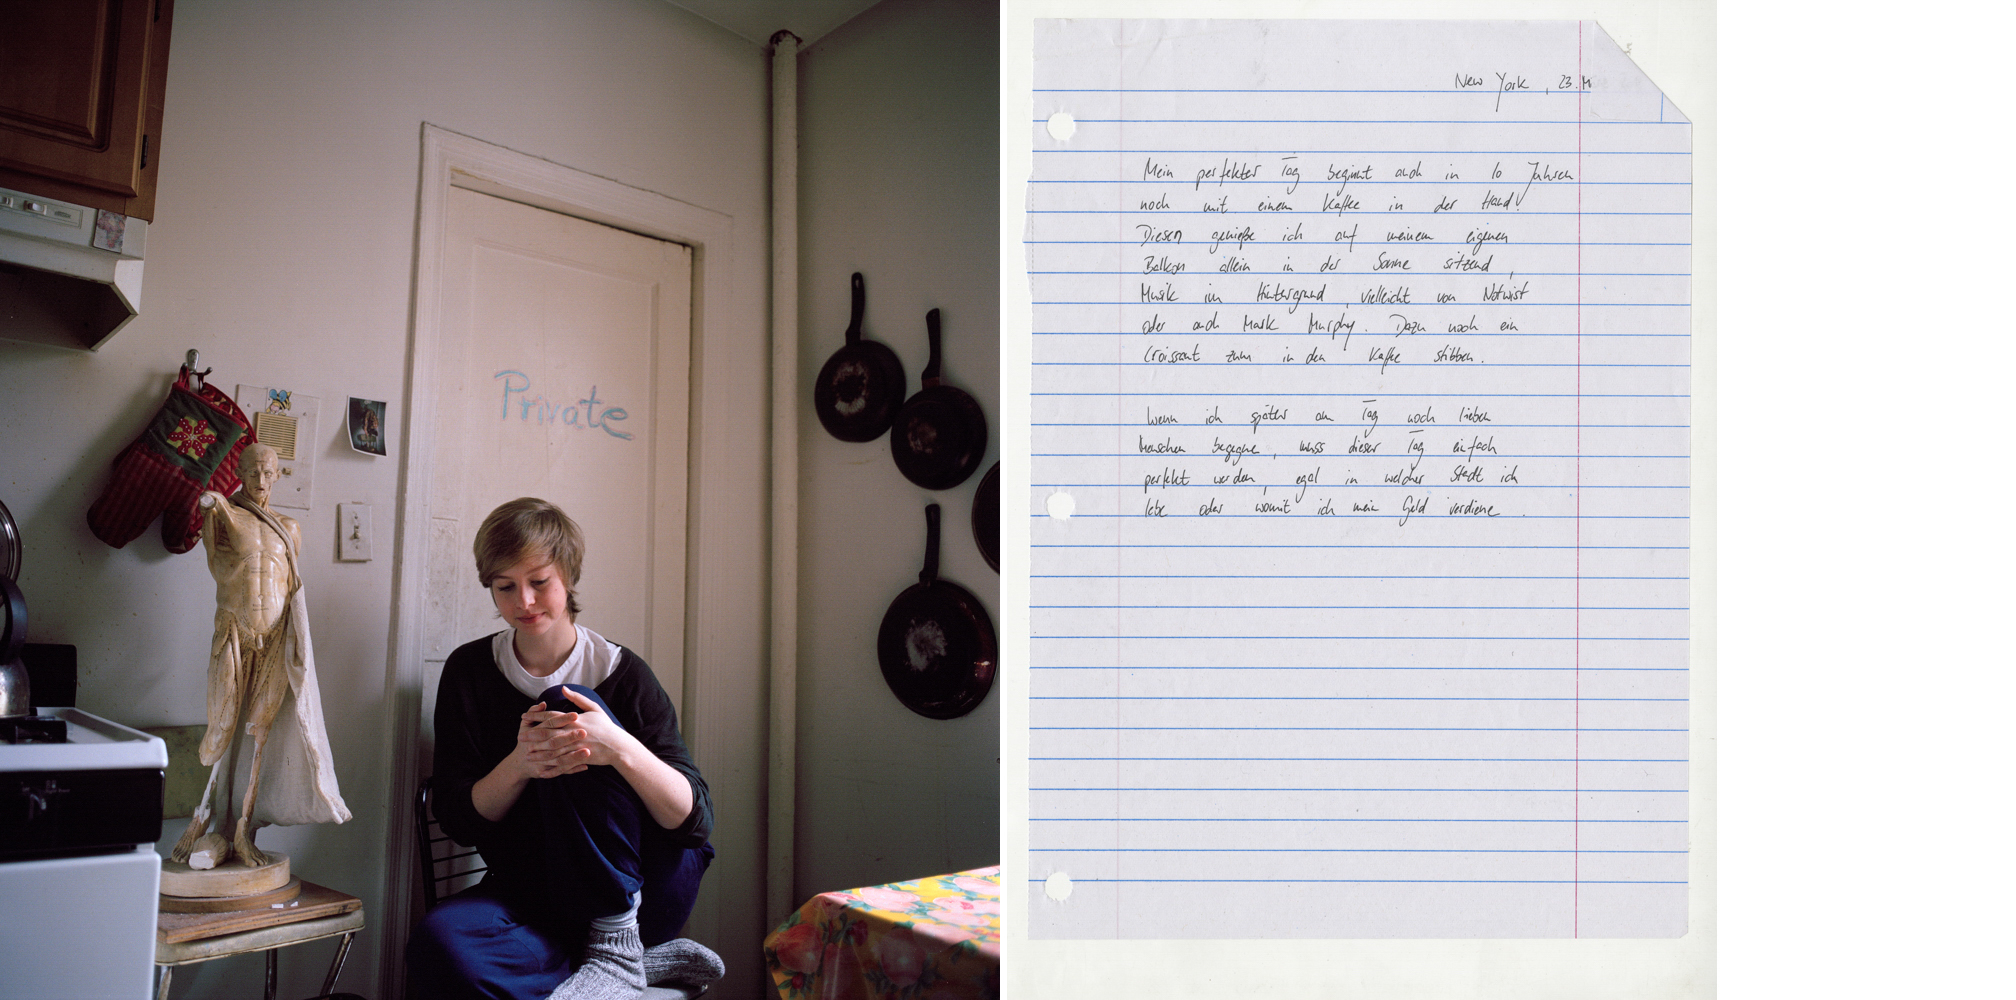 Private
New York, 23. M
Mein perfekter Tag beginnt auch in 10 Jahren
noch mit einem Kaffee in der Hand!
Diesen genieße ich auf meinem eigenen
Balkon allein in der Sonne sitzend,
Musik im Hintergrund, vielleicht von Notwist
oder auch Mark Murphy. Dazu noch ein
Croissant zum in den Kaffee stibben.
Wenn ich später am Tag noch lieben
Menschen begegne, muss dieser Tag einfach
perfekt werden, egal in welcher Stadt ich
lebe oder womit ich mein Geld verdiene.